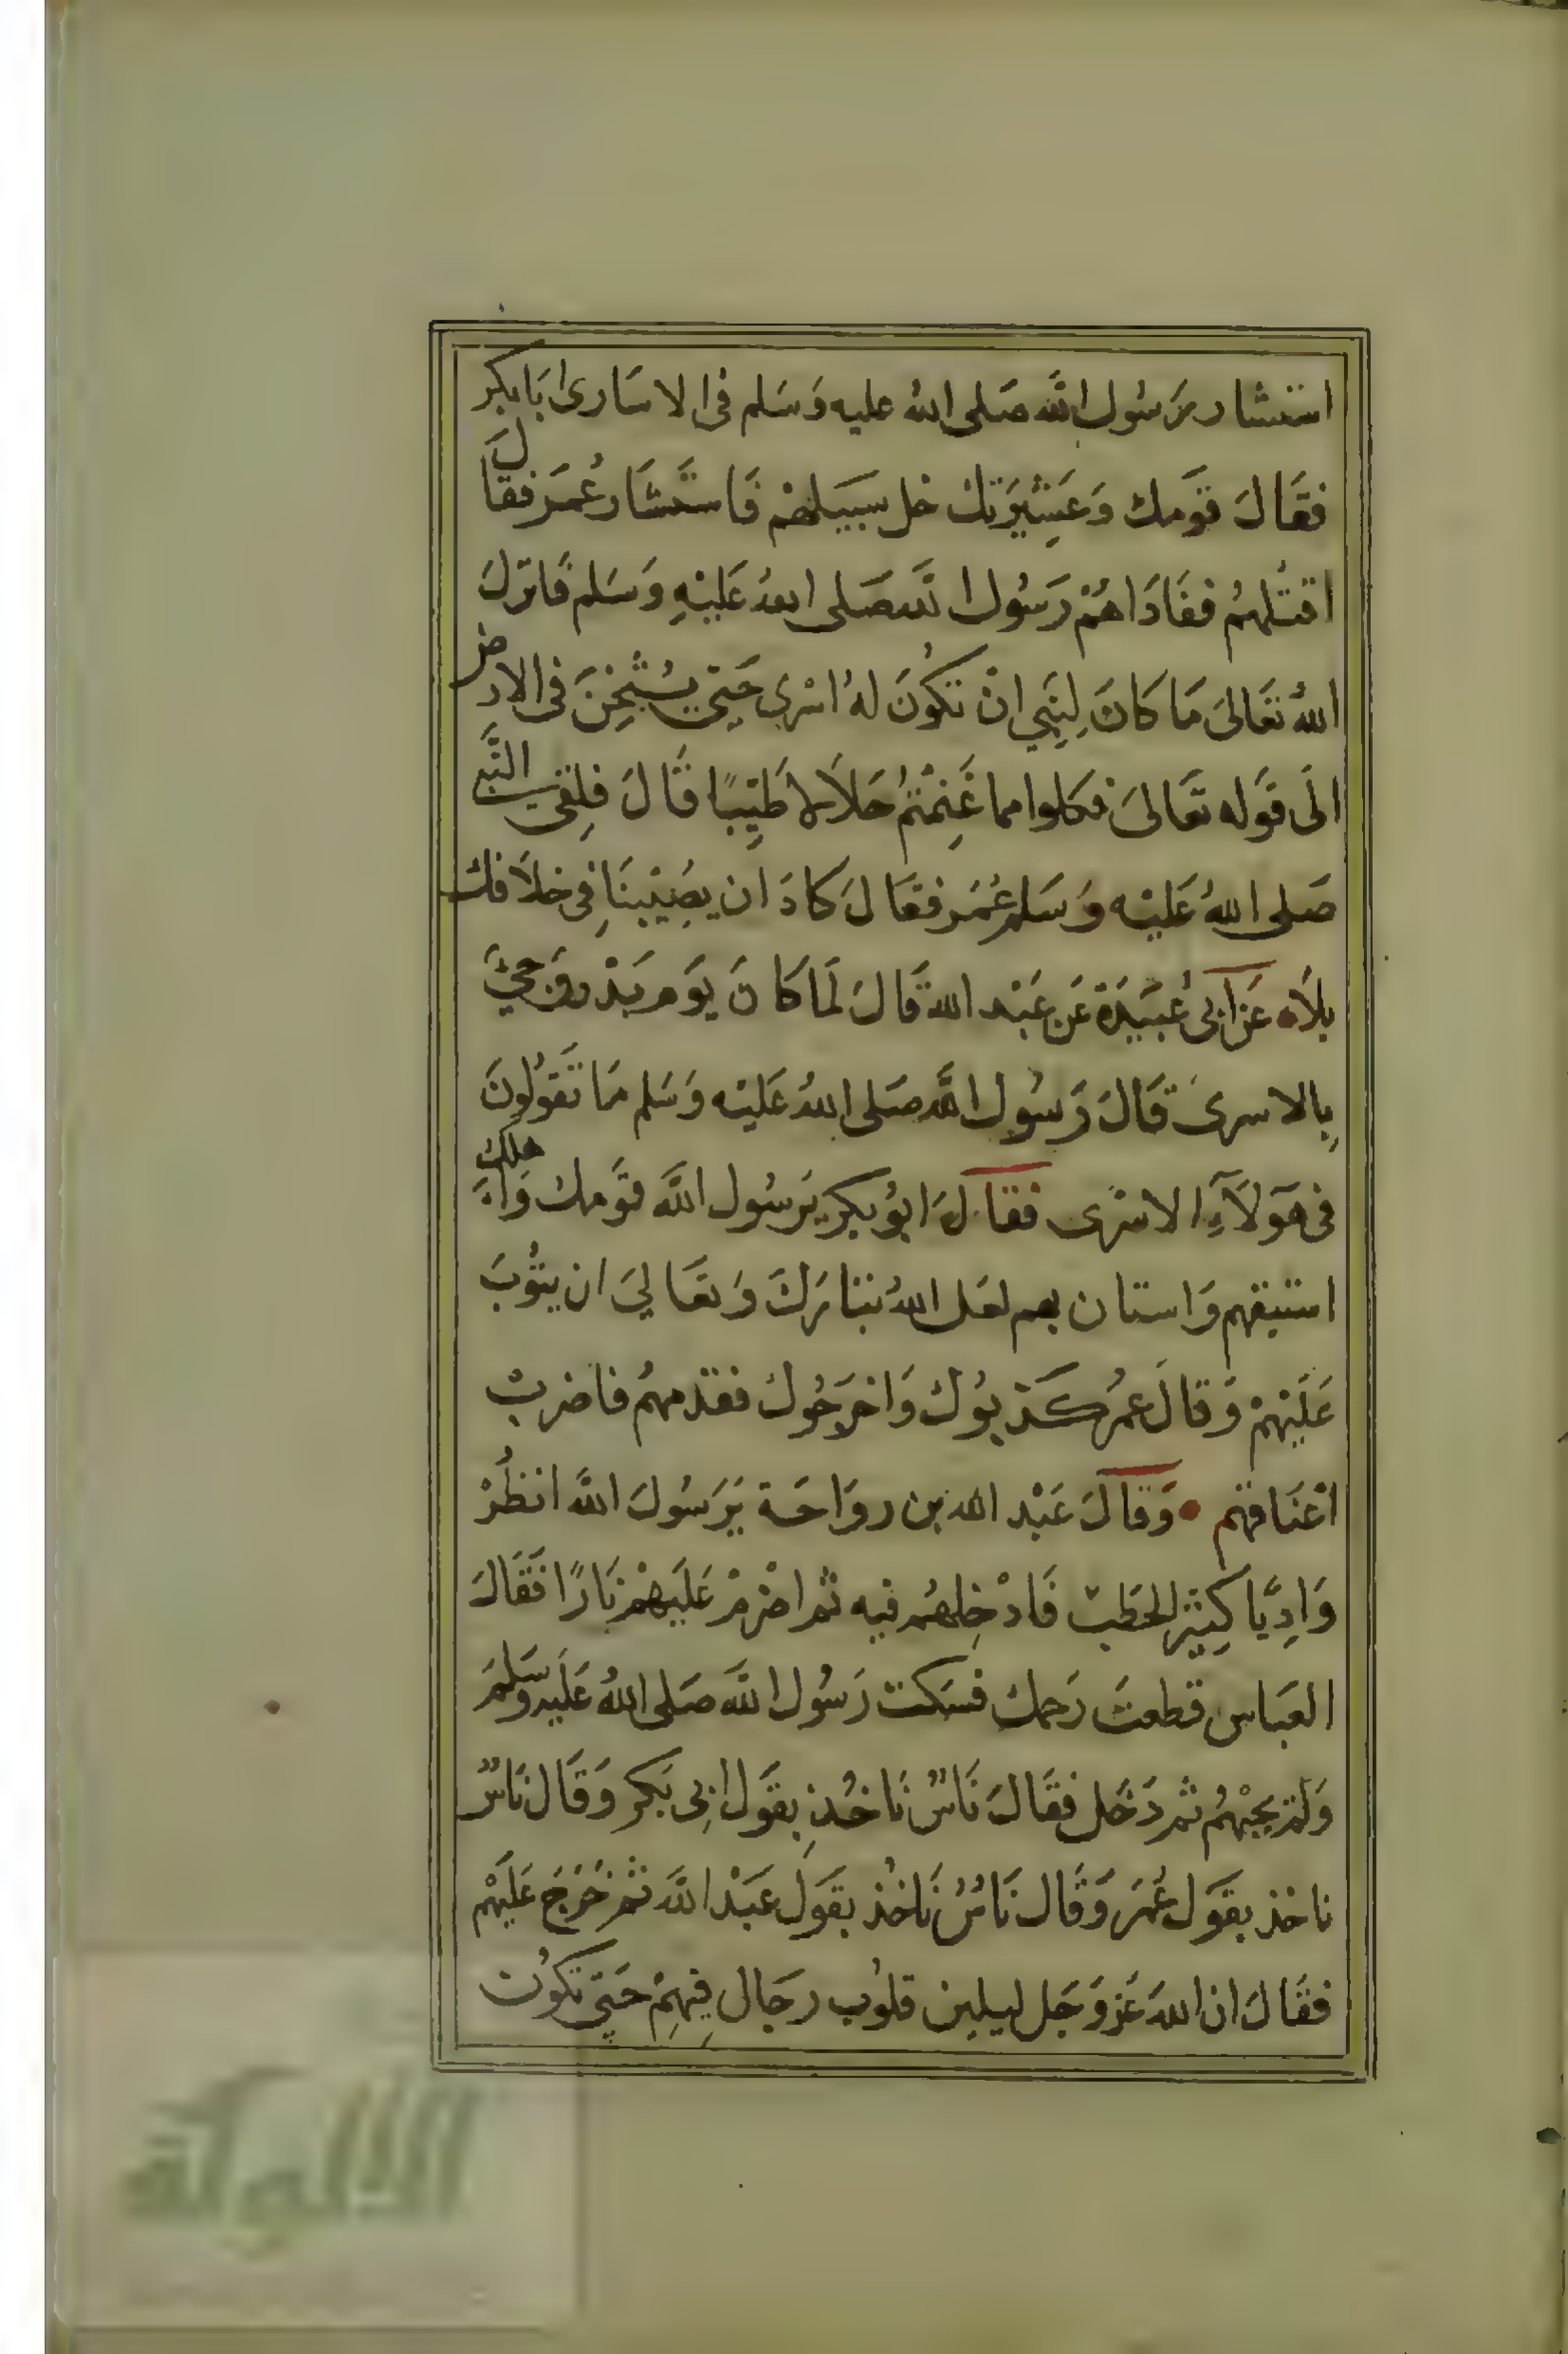 استشار رَسُول اللَّه صَلى اللهُ عليه وَسَلم فى الاسَارى ابَا بكر
فقَالَ قَومك وَعَشِيْرَتك خل سبيَلهْم فَاستَشَار عُمَر فقَالَ
اقتلهمُ ففَادَاهُمْ رَسُول اللَّه صَلى اللهُ عَليْهِ وَسَلم فَانزلَ
اللهُ تعَالىَ مَا كَانَ لِنَبِي انْ تكُونَ لهُ اسْرى حَتِي يُثْخِنَ فى الارض
الَى قَوله تعَالىَ فكلوا مما غَنِمْتُمُ حَلاَلاً طَيِّبًا قَالَ فلِقى النَّبي
صَلى اللهُ عَليْه وَسَلم عُمَر فقَالَ كادَ ان يصِيْبنَا فِى خلاَفك
بلاَء عَن ابى عُبَيْدَة عَن عَبْد الله قَالَ لَمَا كَانَ يَوم بَدْر وَجيَ
بِالاسرىَ قَالَ رَسُول اللَّه صَلى اللهُ عَليْه وَسَلم مَا تَقولُونَ
فى هَوَلآءِ الاسْرى فقَالَ ابُو بكر يَرسُول اللَّه قَومك وَاهلك
استبقهم وَاستان بهم لعَل اللهُ تبَارَكَ وَتعَالىَ ان يتُوبَ
عَلَيْهمْ وَقالَ عمُر كَذبوُكَ وَاخرَجُوك فقدمهمُ فاضربْ
اعْنَاقهم وَقالَ عَبْد الله بن روَاحَة يَرَسُولَ اللَّه انظُرْ
وَادِيًا كِثيْر الحَطَب فَادْخِلهُم فيه ثم اضْرمْ عَليَهمْ نَارًا فَقَالَ
العَباس قطعتَ رَحمك فسَكت رَسُول اللَّه صَلى اللهُ عَليَه وَسَلمَ
وَلمْ يجبْهمُ ثم دَخَل فقَالَ نَاسٌ نَاخُذ بِقَول ابِى بَكر وَقَال نَاسٌ
ناخذ بقَول عُمَر وَقَال نَاسٌ نَاخُذ بقَول عَبْد اللَّه ثم خَرَجَ عَليْهم
فقَالَ ان اللهَ عَز وَجَل ليلين قلوُب رجَال فِيهِمْ حَتى تكوُن
الألوكة